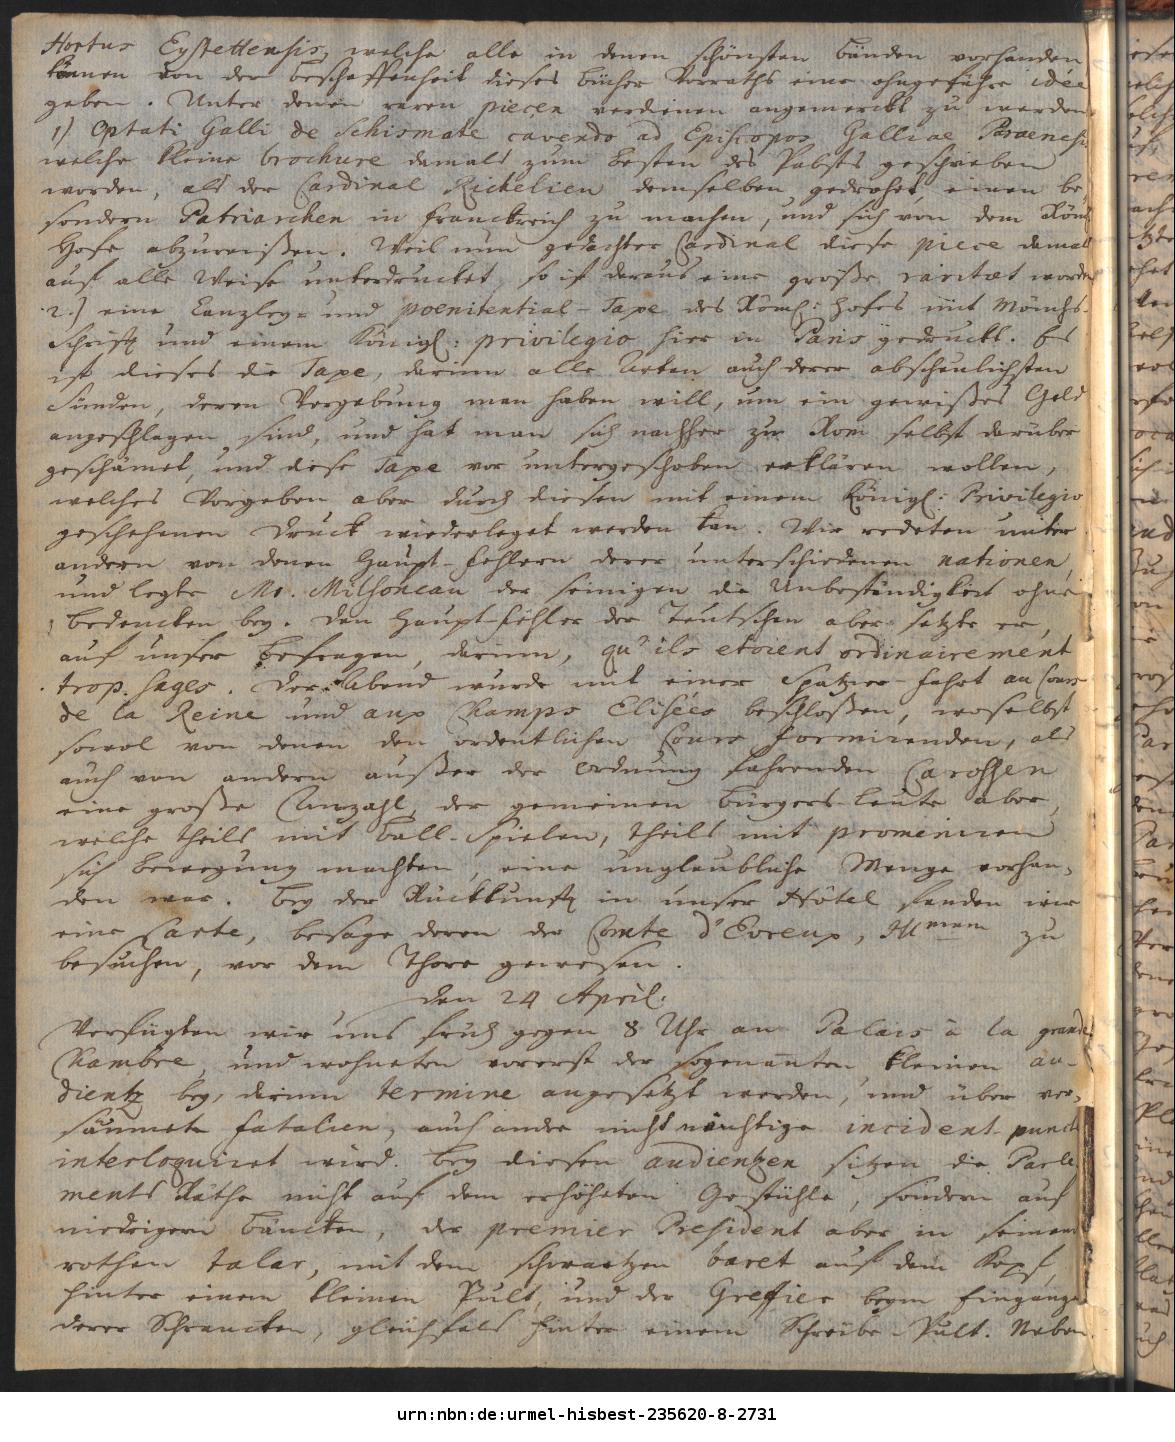 Hortus Eystettensis, welche alle in denen schönsten bänden vorhanden
können von der beschaffenheit dieses bücher Vorraths eine ohngefähre idée
geben. Unter denen raren piecen verdienen angemerckt zu werden
1) Optati Galli de Schismate cavendo ad Episcopos Galliae Paraenesis
welche kleine brochure damals zum besten des Pabsts geschrieben
worden, als der Cardinal Richelieu demselben gedrohet, einen be
sondern Patriarchen in Franckreich zu machen, und sich von dem Röm
Hofe abzureißen. Weil nun gedachter Cardinal diese piece damals
auf alle Weise unterdrucket, so ist daraus eine große raritaet worden
2.) eine Canzley- und poenitential-Taxe des Röm: Hofes mit Mönchs-
Schrift und einem Königl: privilegio hier in Paris gedruckt. Es
ist dieses die Taxe, darinn alle Arten auch derer abscheulichsten
Sünden, deren Vergebung man haben will, um ein gewißes Geld
angeschlagen sind, und hat man sich nachher zu Rom selbst darüber
geschämet, und diese Taxe vor untergeschoben erklären wollen,
welches Vorgeben aber durch diesen mit einem Königl: Privilegio
geschehenen Druck wiederleget werden kan. Wir redeten unter
andern von denen Haupt-Fehlern derer unterschiedenen nationen,
und legte Mr. Milsoneau der seinigen die Unbeständigkeit ohne
bedencken bey. Den Haupt-Fehler der Teutschen aber setzte er,
auf unser befragen, darinn, qu'ils etoient ordinairement
trop sages. Der Abend wurde mit einer Spatzier-fahrt au Cours
de la Reine und aux Champs Elisées beschloßen, woselbst
sowol von denen den ordentlichen Cours formirenden, als
auch von andern außer der Ordnung fahrenden Carossen
eine große Anzahl, der gemeinen bürgers-leute aber,
welche theils mit Ball-Spielen, theils mit promeniren
sich bewegung machten, eine unglaubliche Menge vorhan-
den war. bey der Rückkunft in unser Hôtel fanden wir
eine Carte, besage deren der Comte d'Evreux, Ill<sup>mum</sup> zu
besuchen, vor dem Thore gewesen.
den 24 April.
Verfügten wir uns früh gegen 8 Uhr au Palais à la grande
Chambre, und wohneten vorerst der sogenannten kleinen au-
dientz bey, darinn termine angesetzt werden, und über ver-
säumte fatalien, auch andre nicht wichtige incident-punct
interloquiret wird. bey diesen audientzen sitzen die Parle
ments Räthe nicht auf dem erhöheten Gestühle, sondern auf
niedrigern bäncken, der premier President aber in seinem
rothen talar, mit dem schwartzen baret auf dem Kopf,
hinter einem kleinen Pult, und der Greffier beym Eingange
derer Schrancken, gleichfals hinter einem Schreibe-Pult. Neben
urn:nbn:de:urmel-hisbest-235620-8-2731